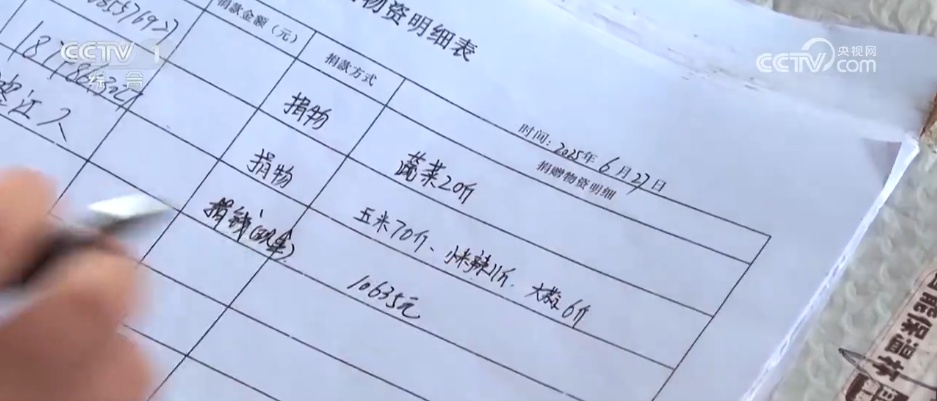 CCTV 1
综合
央视网
CCTV.com
物资明细表
时间：2025年6月27日
捐款金额（元）
捐款方式
捐赠物资明细
捐物
蔬菜20斤
捐物
玉米70斤、小米辣11斤、大蒜6斤
捐钱(现金)
10635元
能保温杯